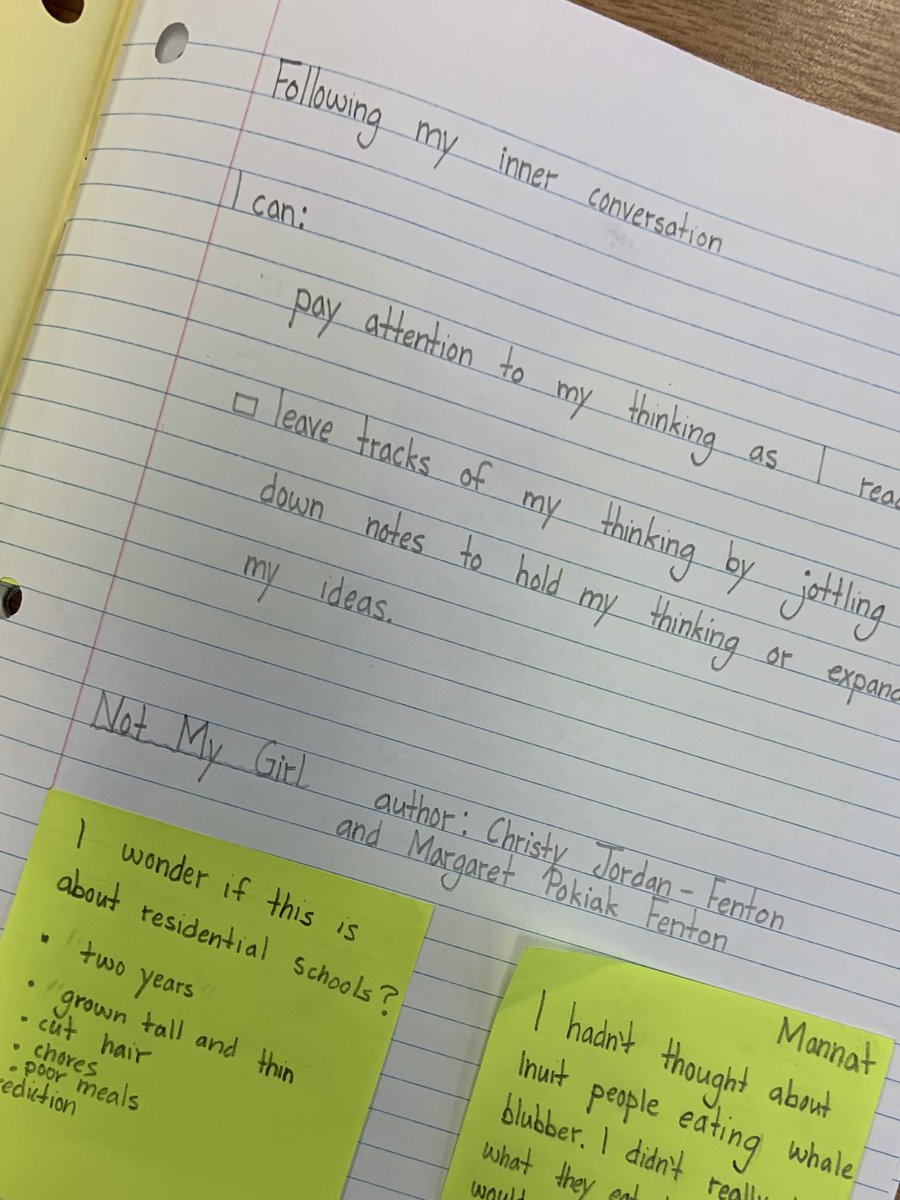 Following my inner conversation
I can:
pay attention to my thinking as I read
leave tracks of my thinking by jotting
down notes to hold my thinking or expand
my ideas.
Not My Girl
author: Christy Jordan-Fenton
and Margaret Pokiak Fenton
I wonder if this is
about residential schools?
• two years
• grown tall and thin
• cut hair
• chores
• poor meals
ediction
Mannat
I hadn't thought about
Inuit people eating whale
blubber. I didn't really
what they eat
would